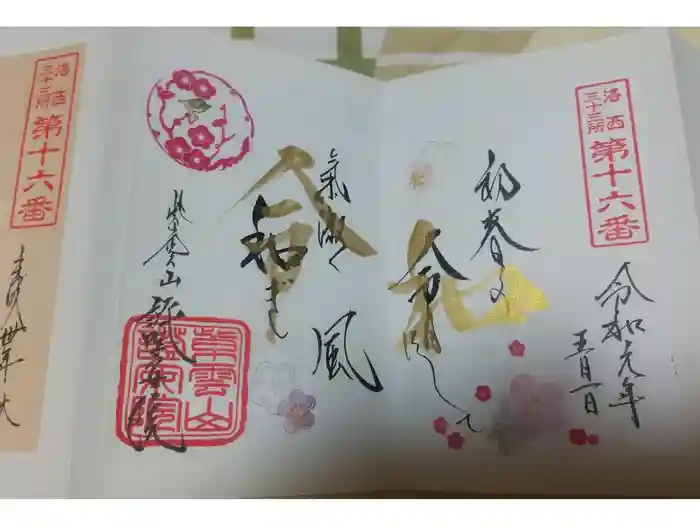 洛西
三十三所
第十六番
令和元年
五月一日
初春の
令月にして
氣淑く
風
和ぎ
紫雲山
紫雲山
洛西
三十三所
第十六番
平成卅年